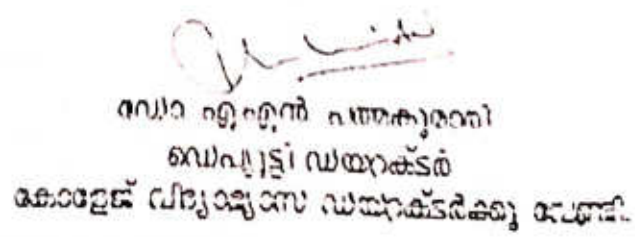 ഡോ എ എൻ
ഡെപ്യൂട്ടി ഡയറക്ടർ
കോളേജ് വിദ്യാഭ്യാസ ഡയറക്ടർക്കു വേണ്ടി.